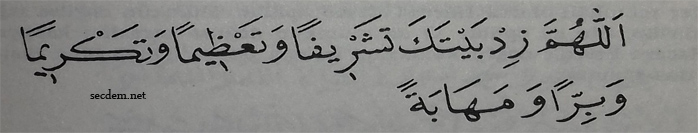 اَللّٰهُمَّ زِدْ بَيْتَكَ تَشْرِيفًا وَتَعْظِيمًا وَتَكْرِيمًا
وَبِرًّا وَمَهَابَةً
secdem.net